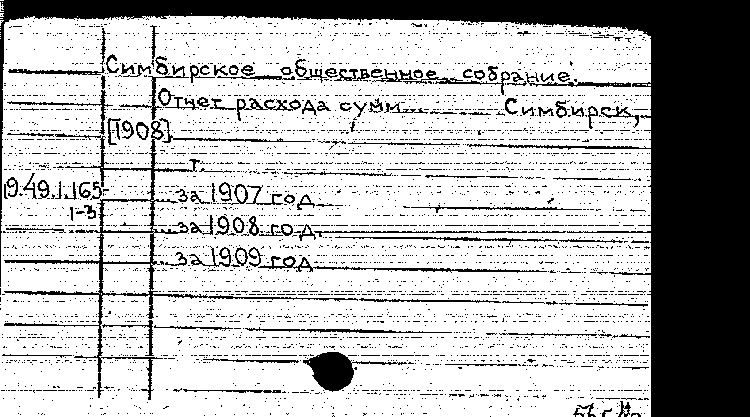 Симбирское общественное собрание.
Отчет расхода сумм... Симбирск,
[1908].
т.
19.49.1.165-
1-3
... за 1907 год
... за 1908 год.
... за 1909 год